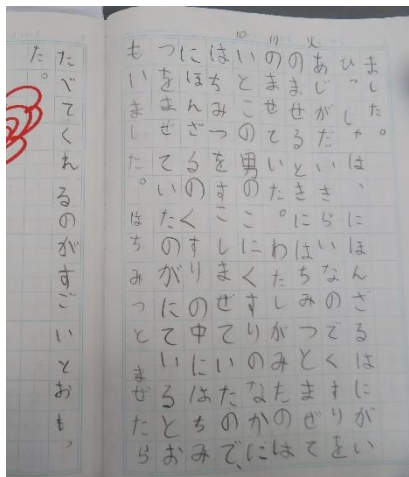 10 17 火
ました。
ひっしゃは、にほんざるはにがい
あじがだいきらいなのでくすりを
のませるときにはちみつとまぜて
のませていた。わたしがみたのは
いとこの男のこにくすりのなかに
はちみつをすこしまぜていたので、
にほんざるのくすりの中にはちみ
つをまぜていたのがにているとお
もいました。はちみつとまぜたら
たべてくれるのがすごいとおもっ
た。